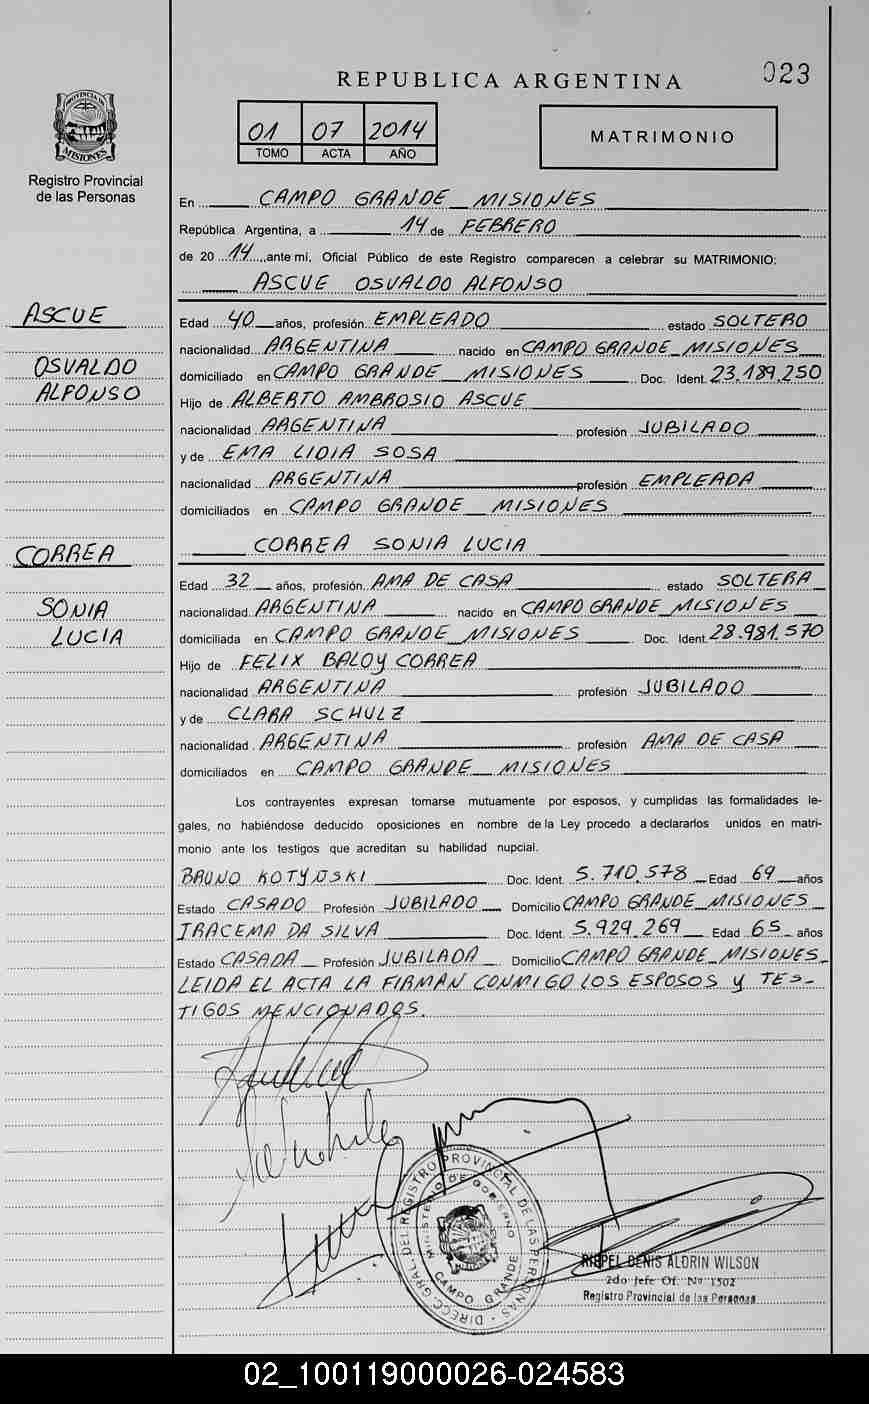 023
REPUBLICA ARGENTINA
01 07 2014
TOMO ACTA AÑO
MATRIMONIO
PROVINCIA DE
MISIONES
Registro Provincial
de las Personas
En CAMPO GRANDE MISIONES
República Argentina, a 14 de FEBRERO
de 20 14 ,ante mí, Oficial Público de este Registro comparecen a celebrar su MATRIMONIO:
ASCUE OSVALDO ALFONSO
ASCUE
OSVALDO
ALFONSO
Edad 40 años, profesión EMPLEADO estado SOLTERO
nacionalidad ARGENTINA nacido en CAMPO GRANDE MISIONES
domiciliado en CAMPO GRANDE MISIONES Doc. Ident. 23.189.250
Hijo de ALBERTO AMBROSIO ASCUE
nacionalidad ARGENTINA profesión JUBILADO
y de EMA LIDIA SOSA
nacionalidad ARGENTINA profesión EMPLEADA
domiciliados en CAMPO GRANDE MISIONES
CORREA SONIA LUCIA
CORREA
SONIA
LUCIA
Edad 32 años, profesión AMA DE CASA estado SOLTERA
nacionalidad ARGENTINA nacido en CAMPO GRANDE MISIONES
domiciliada en CAMPO GRANDE MISIONES Doc. Ident. 28.981.570
Hijo de FELIX BALOY CORREA
nacionalidad ARGENTINA profesión JUBILADO
y de CLARA SCHULZ
nacionalidad ARGENTINA profesión AMA DE CASA
domiciliados en CAMPO GRANDE MISIONES
Los contrayentes expresan tomarse mutuamente por esposos, y cumplidas las formalidades le-
gales, no habiéndose deducido oposiciones en nombre de la Ley procedo a declararlos unidos en matri-
monio ante los testigos que acreditan su habilidad nupcial.
BRUNO KOTYNSKI Doc. Ident. 5.710.578 Edad 69 años
Estado CASADO Profesión JUBILADO Domicilio CAMPO GRANDE MISIONES
IRACEMA DA SILVA Doc. Ident. 5.929.269 Edad 65 años
Estado CASADA Profesión JUBILADA Domicilio CAMPO GRANDE MISIONES
LEIDA EL ACTA LA FIRMAN CONMIGO LOS ESPOSOS Y TES-
TIGOS MENCIONADOS.
DIRECC. GRAL. DEL REGISTRO PROVINCIAL DE LAS PERSONAS
MINISTERIO DE GOBIERNO
CAMPO GRANDE
RIEPEL DENIS ALDRIN WILSON
2do Jefe Of. Nº 1502
Registro Provincial de las Personas
02_100119000026-024583